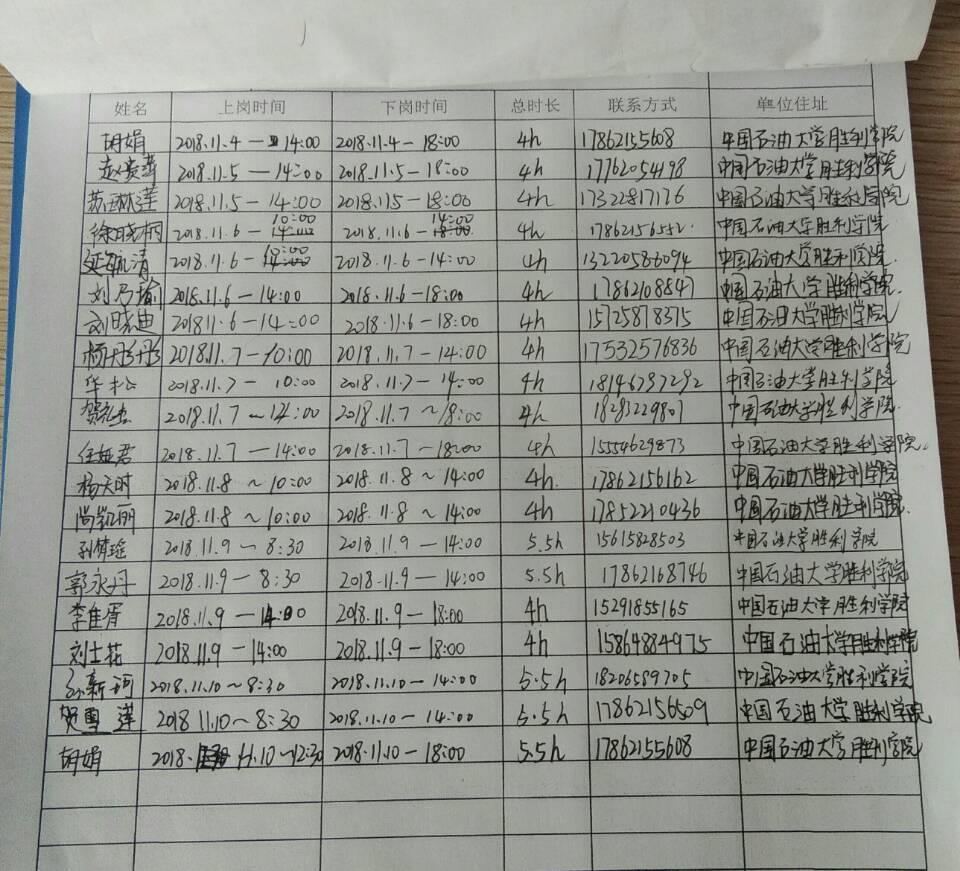 姓名 上岗时间 下岗时间 总时长 联系方式 单位住址
胡娟 2018.11.4 — 14:00 2018.11.4 — 18:00 4h 17862155608 中国石油大学胜利学院
赵贵萍 2018.11.5 — 14:00 2018.11.5 — 18:00 4h 17762054198 中国石油大学胜利学院
苏琳莲 2018.11.5 — 14:00 2018.115 — 18:00 4h 17322817176 中国石油大学胜利学院
徐晓桐 2018.11.6 — 10:00 2018.11.6 — 14:00 4h 17862156552 中国石油大学胜利学院
延毓清 2018.11.6 — 10:00 2018.11.6 — 14:00 4h 13220586094 中国石油大学胜利学院
刘乃榆 2018.11.6 — 14:00 2018.11.6 — 18:00 4h 17862108847 中国石油大学胜利学院
刘晓迪 201811.6 — 14:00 2018.11.6 — 18:00 4h 15725878375 中国石油大学胜利学院
杨丹彤 2018.11.7 — 10:00 2018.11.7 — 14:00 4h 17532576836 中国石油大学胜利学院
华松 2018.11.7 — 10:00 2018.11.7 — 14:00 4h 18146797292 中国石油大学胜利学院
2018.11.7 ~ 14:00 2018.11.7 ~ 18:00 4h 18283229807 中国石油大学胜利学院
任娅君 2018.11.7 — 14:00 2018.11.7 — 18:00 4h 15554629873 中国石油大学胜利学院
杨天时 2018.11.8 ~ 10:00 2018.11.8 ~ 14:00 4h 17862156162 中国石油大学胜利学院
尚凯丽 2018.11.8 ~ 10:00 2018.11.8 ~ 14:00 4h 17852210436 中国石油大学胜利学院
孙倩瑶 2018.11.9 — 8:30 2018.11.9 — 14:00 5.5h 15615828503 中国石油大学胜利学院
郭永丹 2018.11.9 — 8:30 2018.11.9 — 14:00 5.5h 17862168746 中国石油大学胜利学院
李佳胥 2018.11.9 — 14:00 2018.11.9 — 18:00 4h 15291855165 中国石油大学胜利学院
刘士花 2018.11.9 — 14:00 2018.11.9 — 18:00 4h 15864884975 中国石油大学胜利学院
孟新珂 2018.11.10 ~ 8:30 2018.11.10 — 14:00 5.5h 18206589705 中国石油大学胜利学院
贺雪莲 2018 11.10 ~ 8:30 2018.11.10 — 14:00 5.5h 17862156509 中国石油大学胜利学院
胡娟 2018. 11.10 — 12:30 2018.11.10 — 18:00 5.5h 17862155608 中国石油大学胜利学院